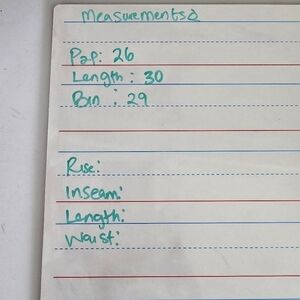 Measurements
P2P: 26
Length: 30
Bin: 29
Rise:
Inseam:
Length:
Waist: